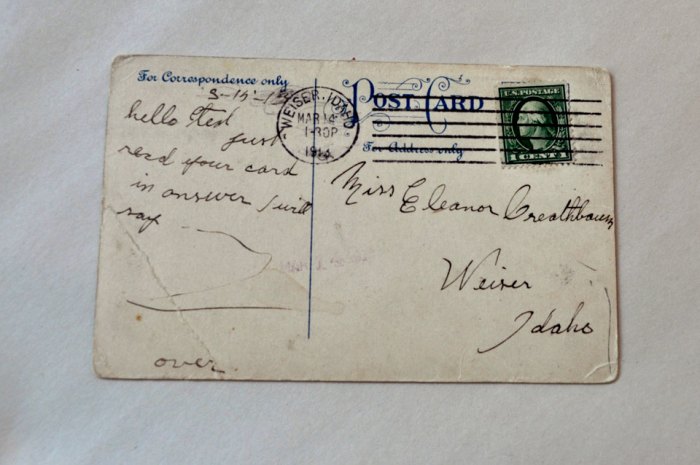 For Correspondence only
hello
just
read your card
in answer I will
say
over
POST CARD
For Address only
WEISER, IDAHO
MAR 14
1-30P
U.S. POSTAGE
1 CENT 1
Miss Eleanor
Weiser
Idaho
MAR